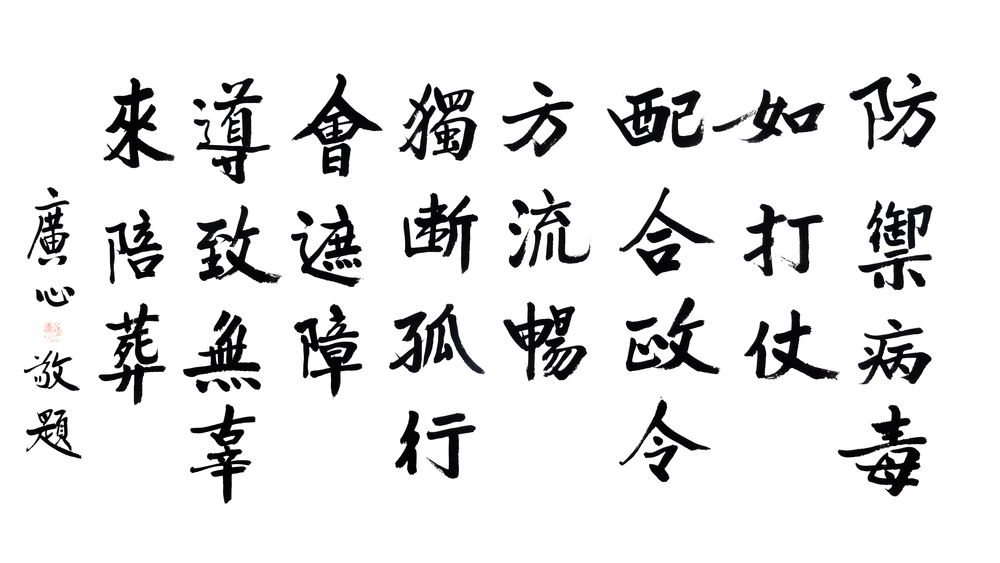 防禦病毒
如打仗
配合政令
方流暢
獨斷孤行
會遮障
導致無辜
來陪葬
廣心敬題